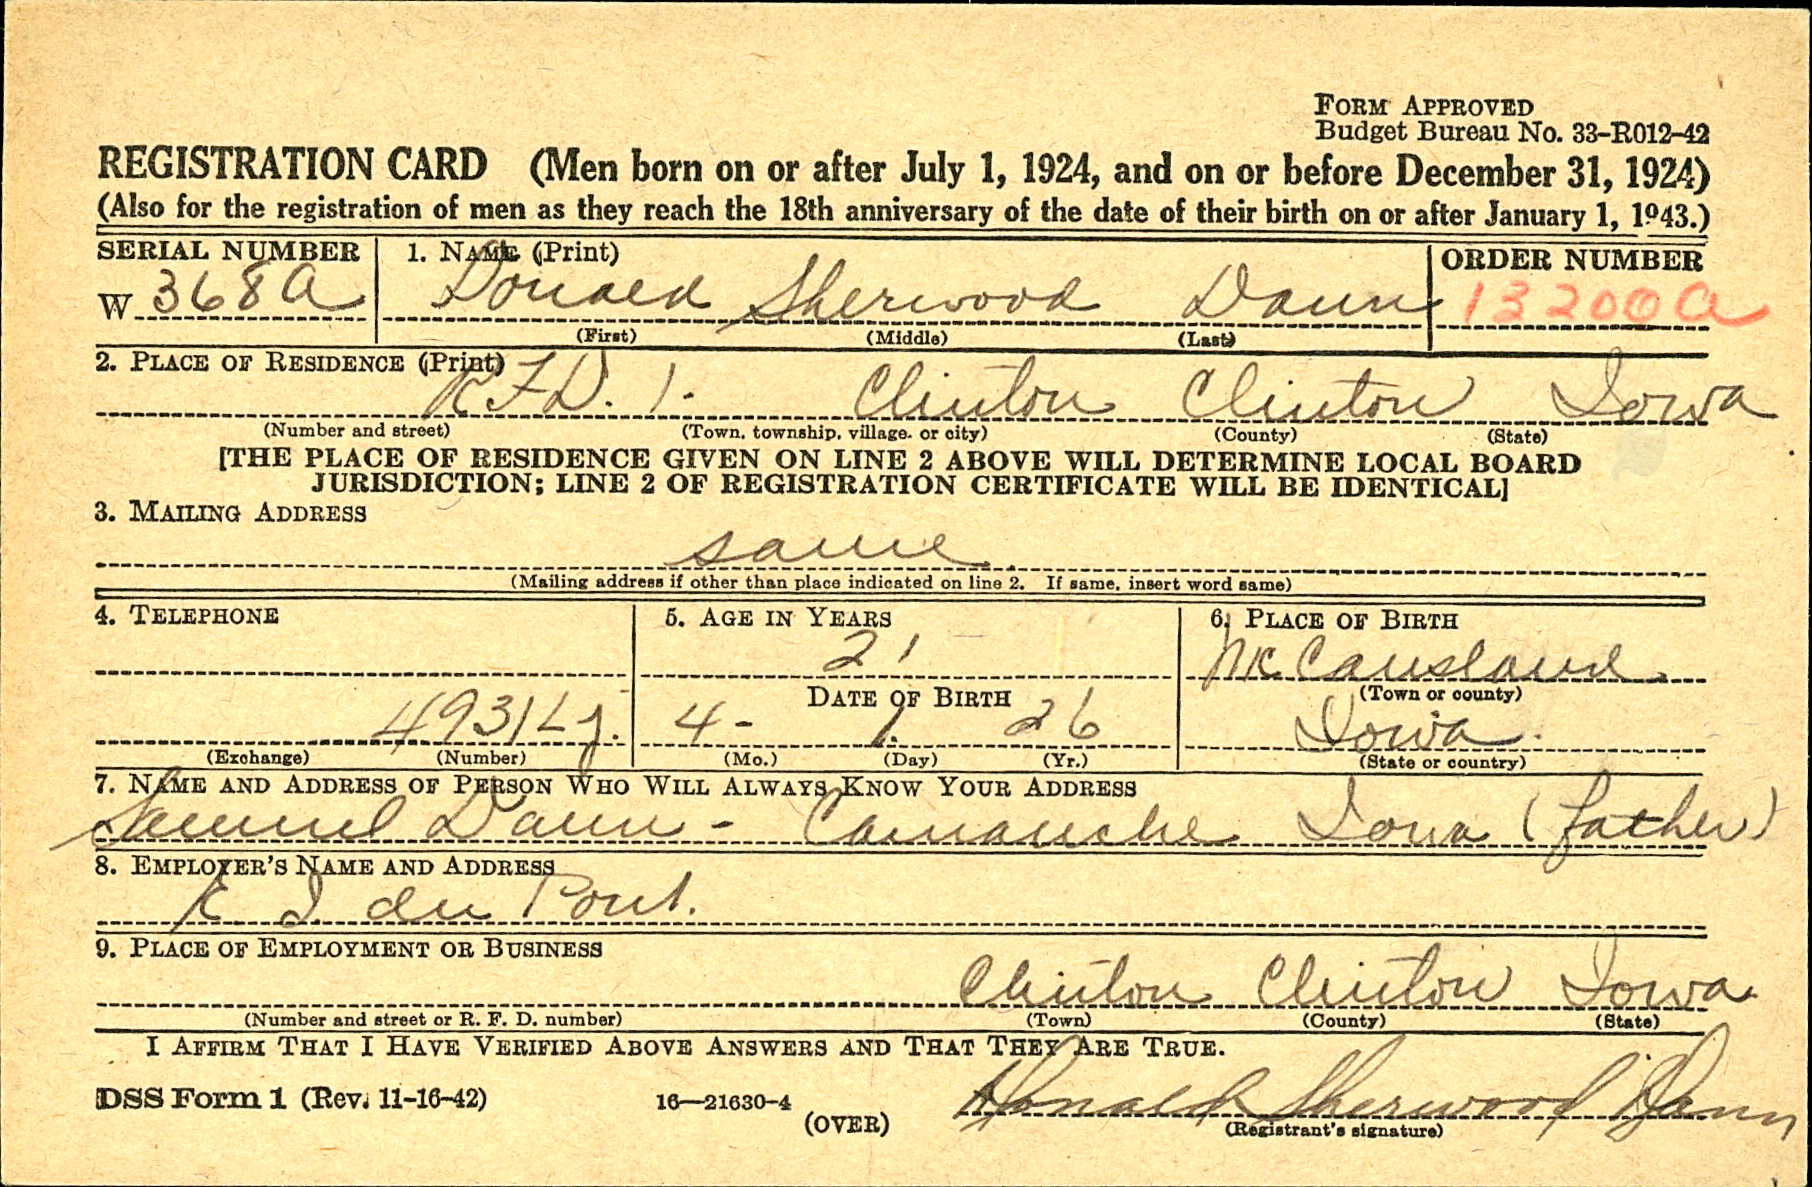 FORM APPROVED
Budget Bureau No. 33-R012-42
REGISTRATION CARD (Men born on or after July 1, 1924, and on or before December 31, 1924)
(Also for the registration of men as they reach the 18th anniversary of the date of their birth on or after January 1, 1943.)
SERIAL NUMBER 1. NAME (Print) ORDER NUMBER
W 368A Donald Sherwood Dann 13200A
(First) (Middle) (Last)
2. PLACE OF RESIDENCE (Print)
RFD. 1. Clinton Clinton Iowa
(Number and street) (Town, township, village, or city) (County) (State)
[THE PLACE OF RESIDENCE GIVEN ON LINE 2 ABOVE WILL DETERMINE LOCAL BOARD
JURISDICTION; LINE 2 OF REGISTRATION CERTIFICATE WILL BE IDENTICAL]
3. MAILING ADDRESS
same
(Mailing address if other than place indicated on line 2. If same, insert word same)
4. TELEPHONE 5. AGE IN YEARS 6. PLACE OF BIRTH
21 McCausland
(Town or county)
DATE OF BIRTH
4931LJ. 4- 1. 26 Iowa
(Exchange) (Number) (Mo.) (Day) (Yr.) (State or country)
7. NAME AND ADDRESS OF PERSON WHO WILL ALWAYS KNOW YOUR ADDRESS
Samuel Dann - Camanche Iowa (father)
8. EMPLOYER'S NAME AND ADDRESS
E I du Pont.
9. PLACE OF EMPLOYMENT OR BUSINESS
Clinton Clinton Iowa
(Number and street or R. F. D. number) (Town) (County) (State)
I AFFIRM THAT I HAVE VERIFIED ABOVE ANSWERS AND THAT THEY ARE TRUE.
DSS Form 1 (Rev. 11-16-42) 16—21630-4 (OVER) Donald Sherwood Dann
(Registrant's signature)